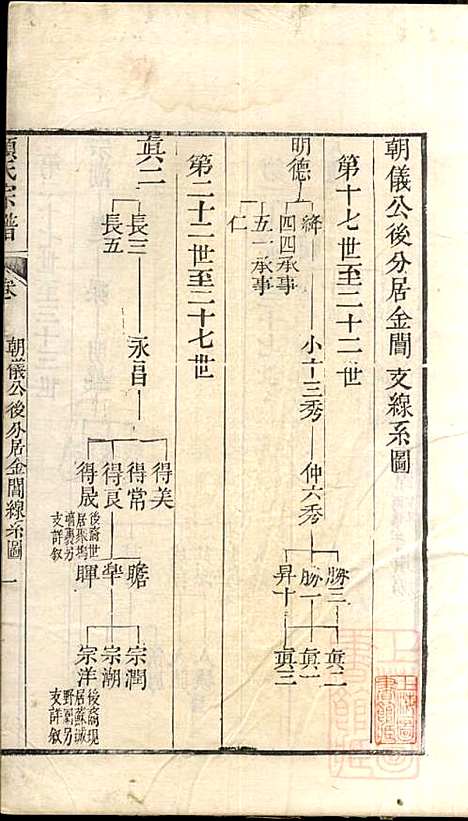 朝儀公後分居金閶支線系圖
第十七世至二十二世
明德
絳
四四承事
五一承事
仁
小十三秀
仲六秀
勝三
勝一
昇十
眞二
眞一
眞三
第二十二世至二十七世
眞二
長三
長五
永昌
得美
得常
得良
得晟
後裔世
居
另
支詳叙
瞻
犖
暉
宗潤
宗湖
宗洋
後裔現
居蘇城
野 另
支詳叙
氏宗譜
卷
朝儀公後分居金閶線系圖
一